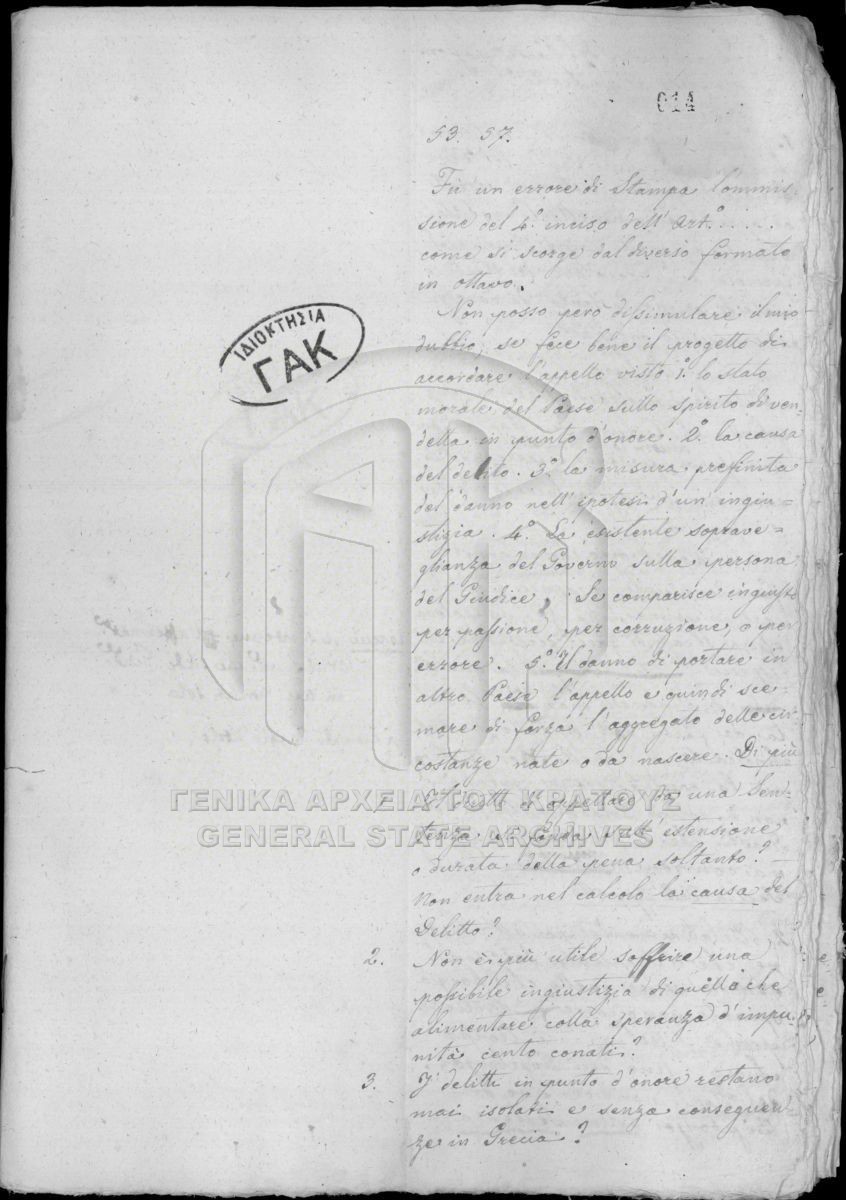 014
53. 57.
Fù un errore di Stampa l'ommis-
sione del 4.º inciso dell'Art.º . . . .
come si scorge dal diverso formato
in ottavo.
Non posso però dissimulare il mio
dubbio, se fece bene il progetto di
accordare l'appello visto 1.º lo stato
morale del Paese sullo spirito di ven-
detta in punto d'onore. 2.º la causa
del delito. 3.º la misura prefinita
del danno nell'ipotesi d'un'ingiu-
stizia. 4.º La esistente soprave-
glianza del Governo sulla persona
del Giudice, Se comparisce ingiusto
per passione, per corruzione, o per
errore. 5.º Il danno di portare in
altro Paese l'appello e quindi sce-
mare di forza l'aggregato delle cir
costanze nate o da nascere. Di più
ΙΔΙΟΚΤΗΣΙΑ
ΓΑΚ
ΓΕΝΙΚΑ ΑΡΧΕΙΑ ΤΟΥ ΚΡΑΤΟΥΣ
GENERAL STATE ARCHIVES
1. Il diritto d'appellare da una Sen-
tenza si fonda sull'estensione
o durata della pena soltanto?
Non entra nel calcolo la causa del
Delitto?
2. Non è più utile soffrire una
possibile ingiustizia di quello che
alimentare colla speranza d'impu-
nità cento conati?
3. I delitti in punto d'onore restano
mai isolati e senza conseguen-
ze in Grecia?